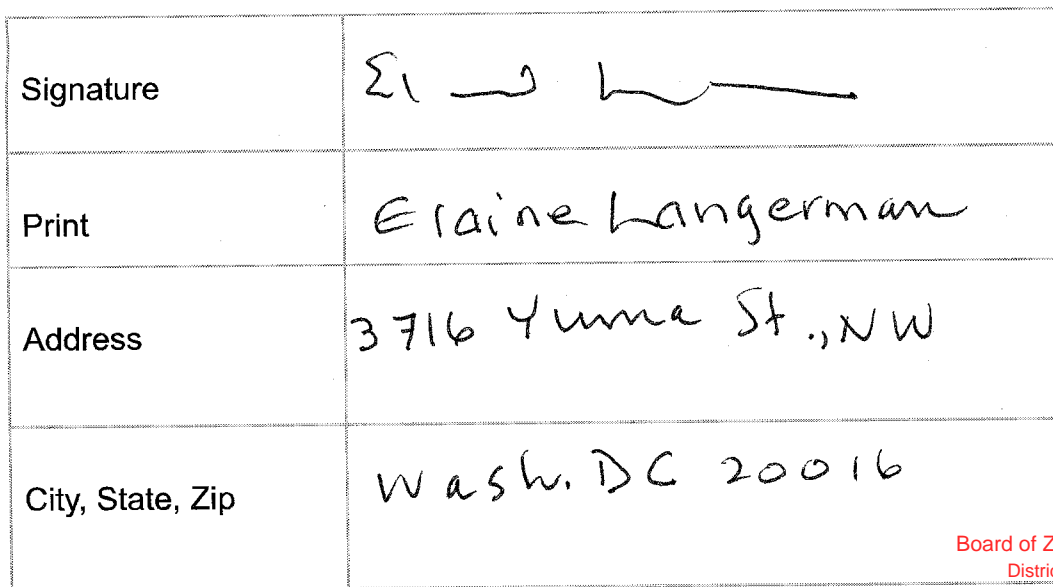 Signature
Print Elaine Langerman
Address 3716 Yuma St., NW
City, State, Zip Wash. DC 20016
Board of Z
Distric